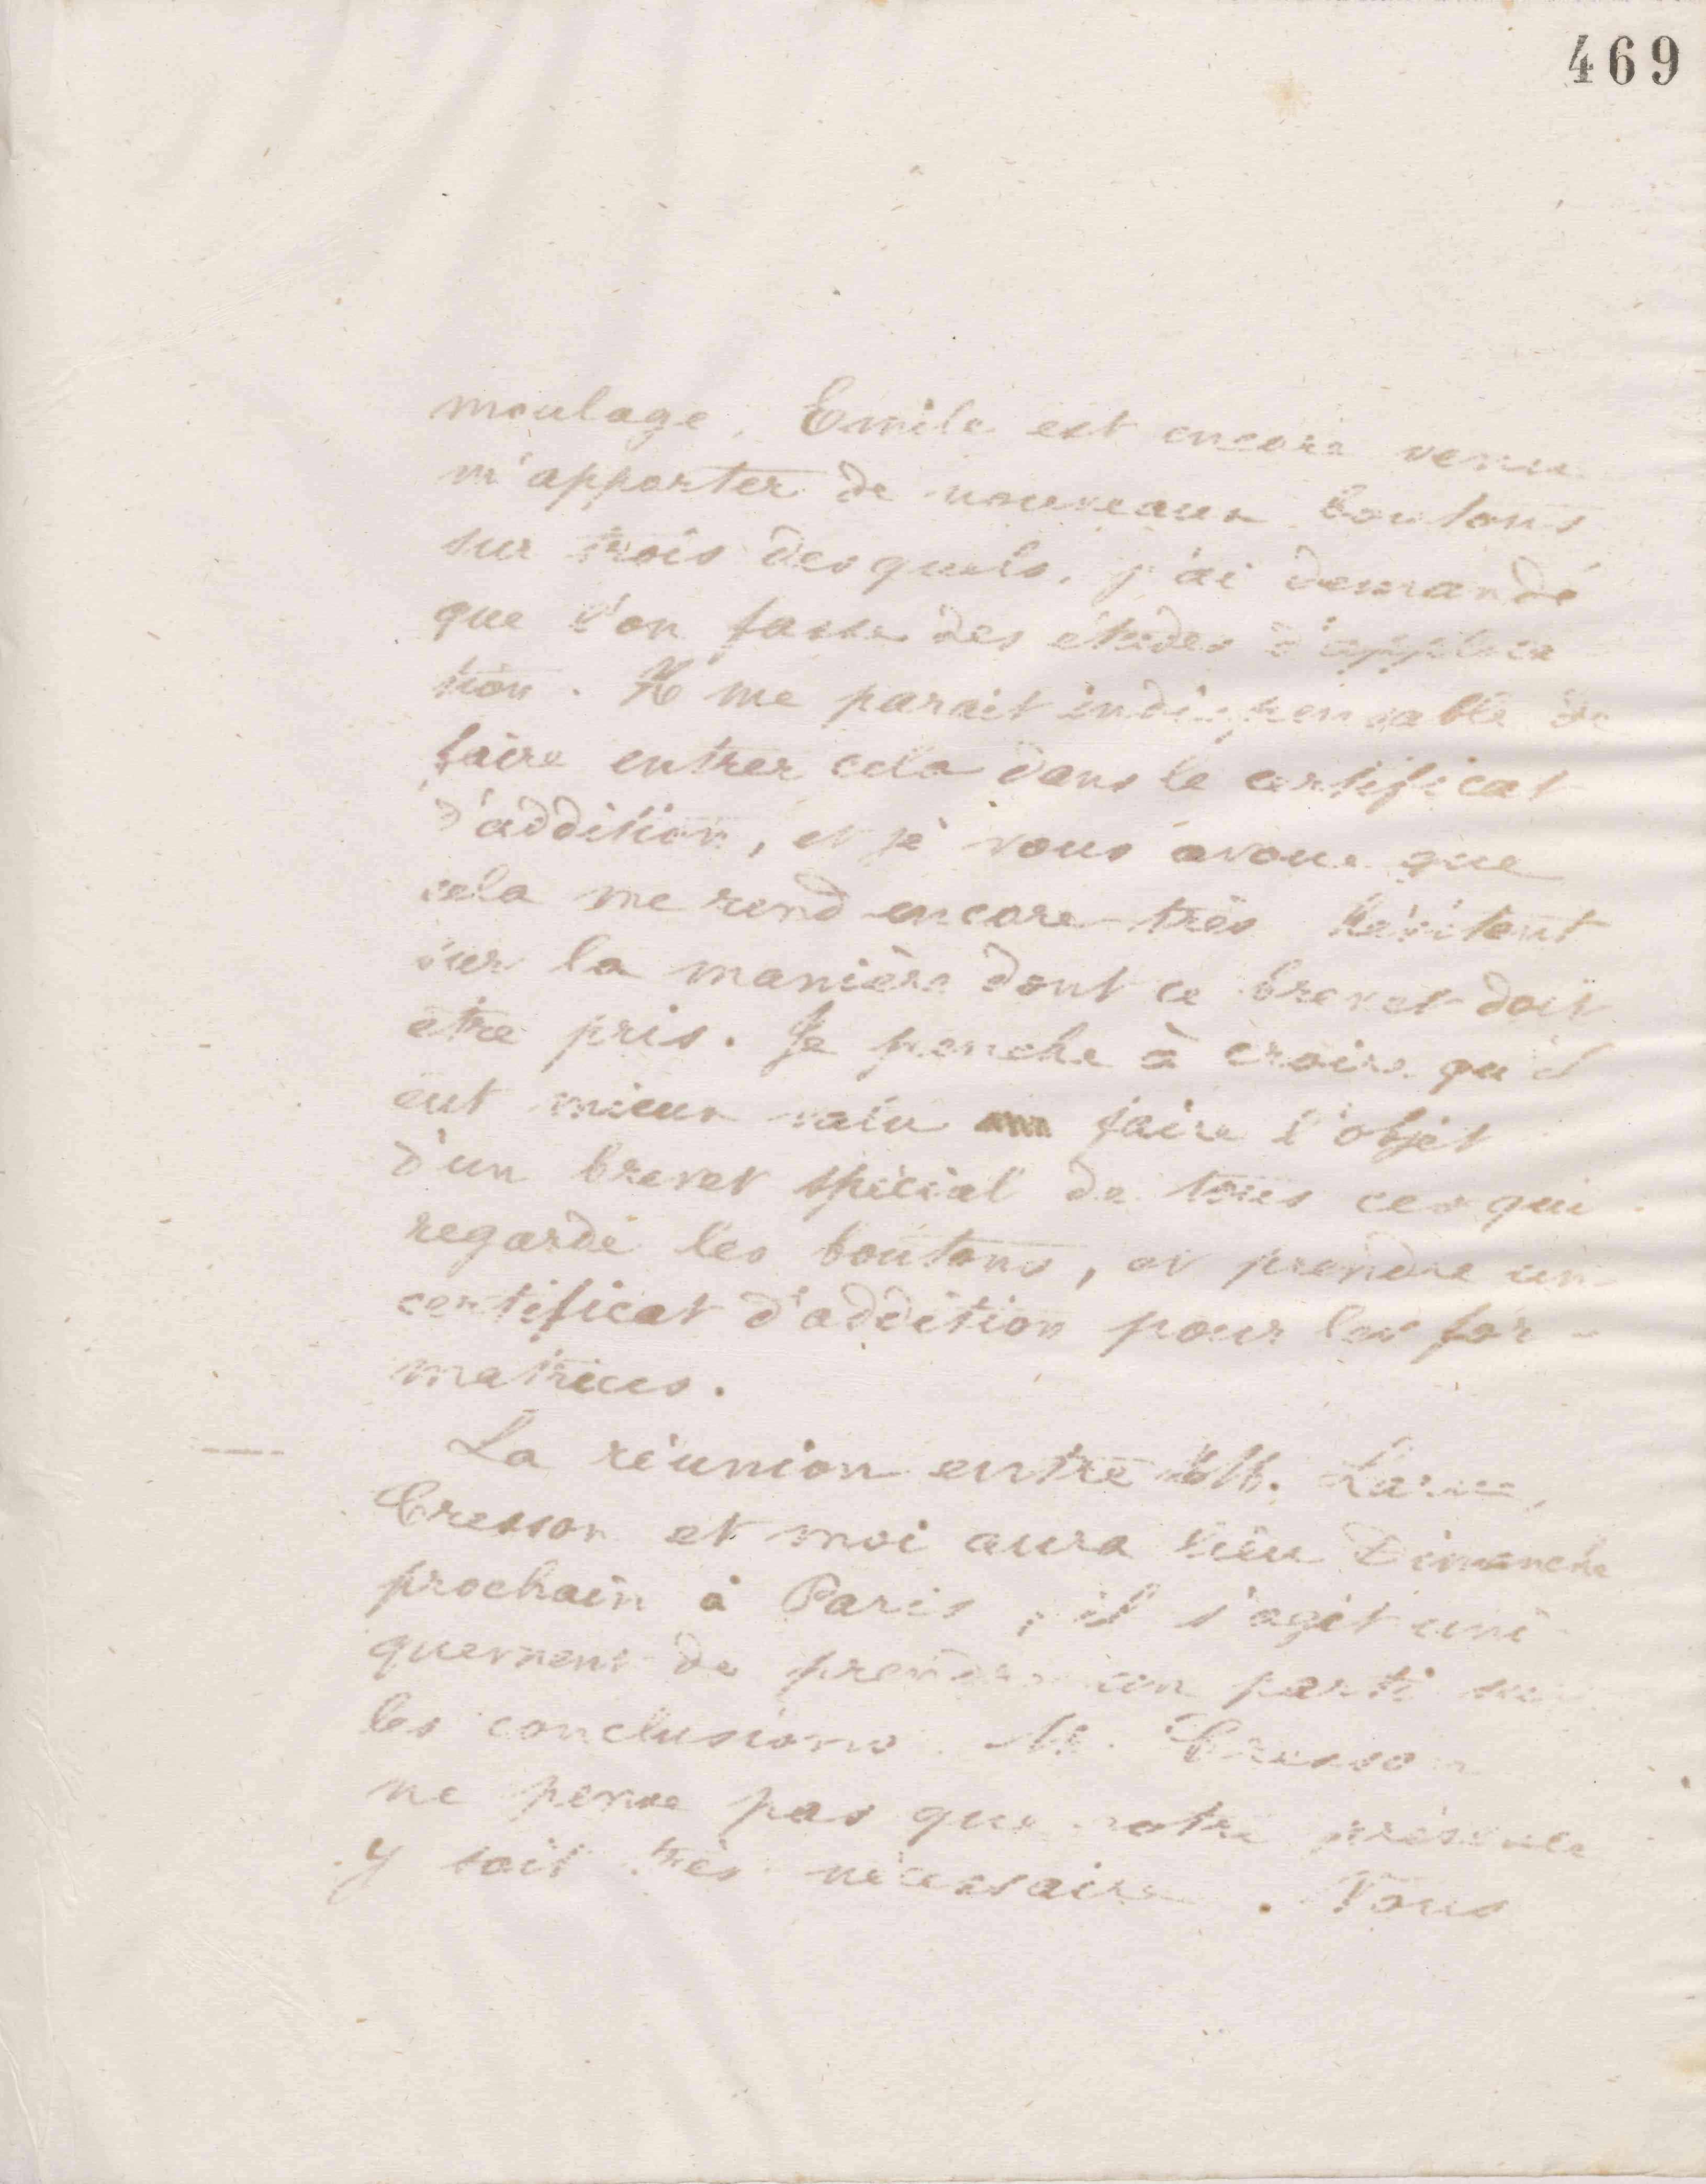 469
moulage. Emile est encore venu
m'apporter de nouveaux boutons
sur trois desquels, j'ai demandé
que l'on fasse des études d'applica
tion. Il me parait indispensable de
faire entrer cela dans le certificat
d'addition, et je vous avoue que
cela me rend encore très hésitant
sur la manière dont ce brevet doit
être pris. Je penche à croire qu'il
eut mieux valu faire l'objet
d'un brevet spécial de tous ces qui
regarde les boutons, et prendre un
certificat d'addition pour les for-
matrices.
La réunion entre MM.
Cresson et moi aura lieu Dimanche
prochain à Paris, il s'agit uni
quement de prendre un parti sur
les conclusions. M. Cresson
ne pense pas que votre présence
y soit très nécessaire. Vous